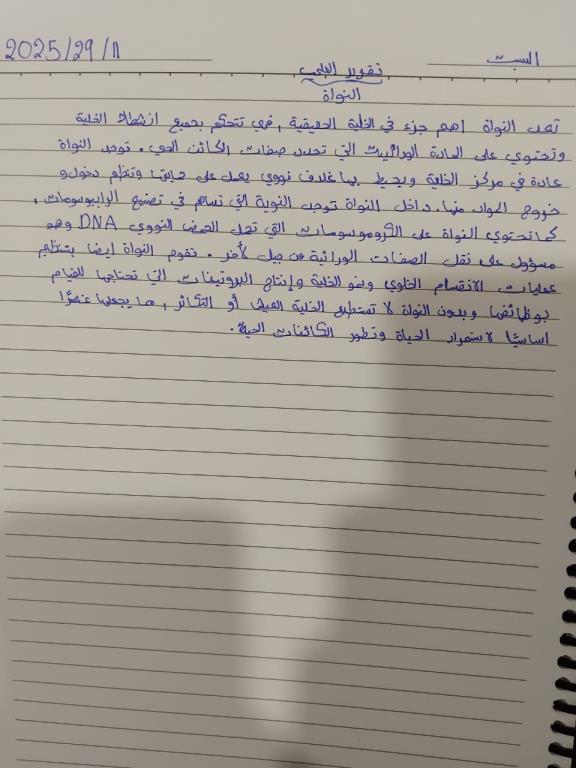 السبت
2025/29/11
تقرير العلمي
النواة
تعد النواة اهم جزء في الخلية الحقيقية , فهي تتحكم بجميع انشطة الخلية
وتحتوي على المادة الوراثية التي تحدد صفات الكائن الحي . توجد النواة
عادة في مركز الخلية ويحيط بها غلاف نووي يعمل على حمايتها وتنظيم دخول و
خروج المواد منها. داخل النواة توجد النوية التي تساهم في تصنيع الرايبوسومات ,
كما تحتوي النواة على الكروموسومات التي تحمل الحمض النووي DNA وهو
مسؤول على نقل الصفات الوراثية من جيل لأخر . تقوم النواة ايضا بتنظيم
عمليات الانقسام الخلوي ونمو الخلية وإنتاج البروتينات التي تحتاجها للقيام
بوظائفها وبدون النواة لا تستطيع الخلية العيش أو التكاثر , مما يجعلها عنصرًا
اساسيًا لاستمرار الحياة وتطور الكائنات الحية .